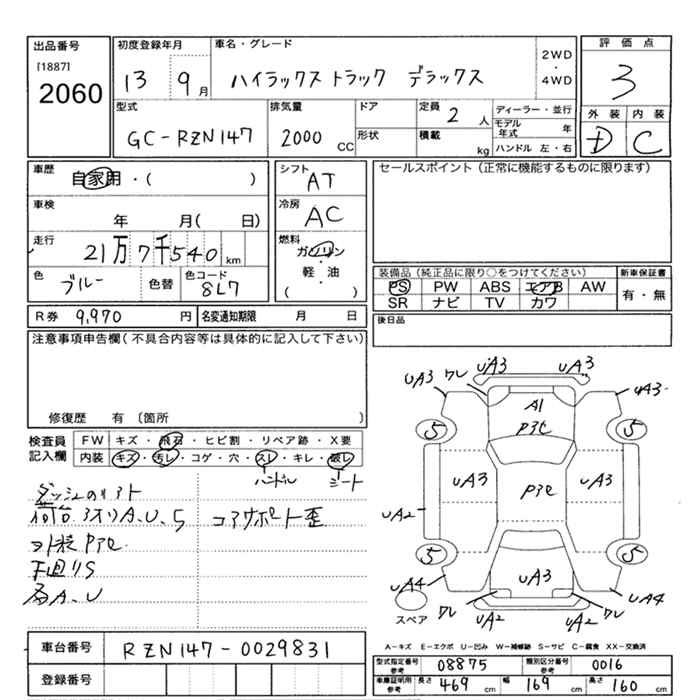 出品番号
[1887]
2060
初度登録年月
13 9月
車名・グレード
ハイラックス トラック デラックス
2WD
・
4WD
評価点
3
型式
GC-RZN147
排気量
2000 CC
ドア
形状
定員
2 人
積載
kg
ディーラー・並行
モデル年式 年
ハンドル 左・右
外装 内装
D C
車歴
自家用・( )
車検
年 月( 日)
走行
21万7千540 km
色
ブルー
色替
色コード
8L7
シフト
AT
冷房
AC
燃料
ガソリン
・
軽・油
( )
セールスポイント(正常に機能するものに限ります)
装備品(純正品に限り○をつけてください)
PS PW ABS エアB AW
SR ナビ TV カワ
新車保証書
有・無
R券 9,970 円
名変通知期限 月 日
後日品
注意事項申告欄(不具合内容等は具体的に記入して下さい)
修復歴 有 〔箇所 〕
検査員記入欄
FW キズ・飛石・ヒビ割・リペア跡・X要
内装 キズ・汚レ・コゲ・穴・スレ・キレ・破レ
ハンドル シート
荷台 A.U.5
コアサポート歪
下回りS
A.U
UA3 ワレ UA3 UA3 UA3
A1
P3E
5 5
UA3 P3E UA3
UA2
5 5
UA3
UA4 UA4
スペア
ワレ UA2 UA2 ワレ
A-キズ E-エクボ U-凹み W-補修跡 S-サビ C-腐食 XX-交換済
車台番号
RZN147-0029831
登録番号
型式指定番号 参考 08875
類別区分番号 参考 0016
車庫証明用 参考 長さ 469 cm 幅 169 cm 高さ 160 cm